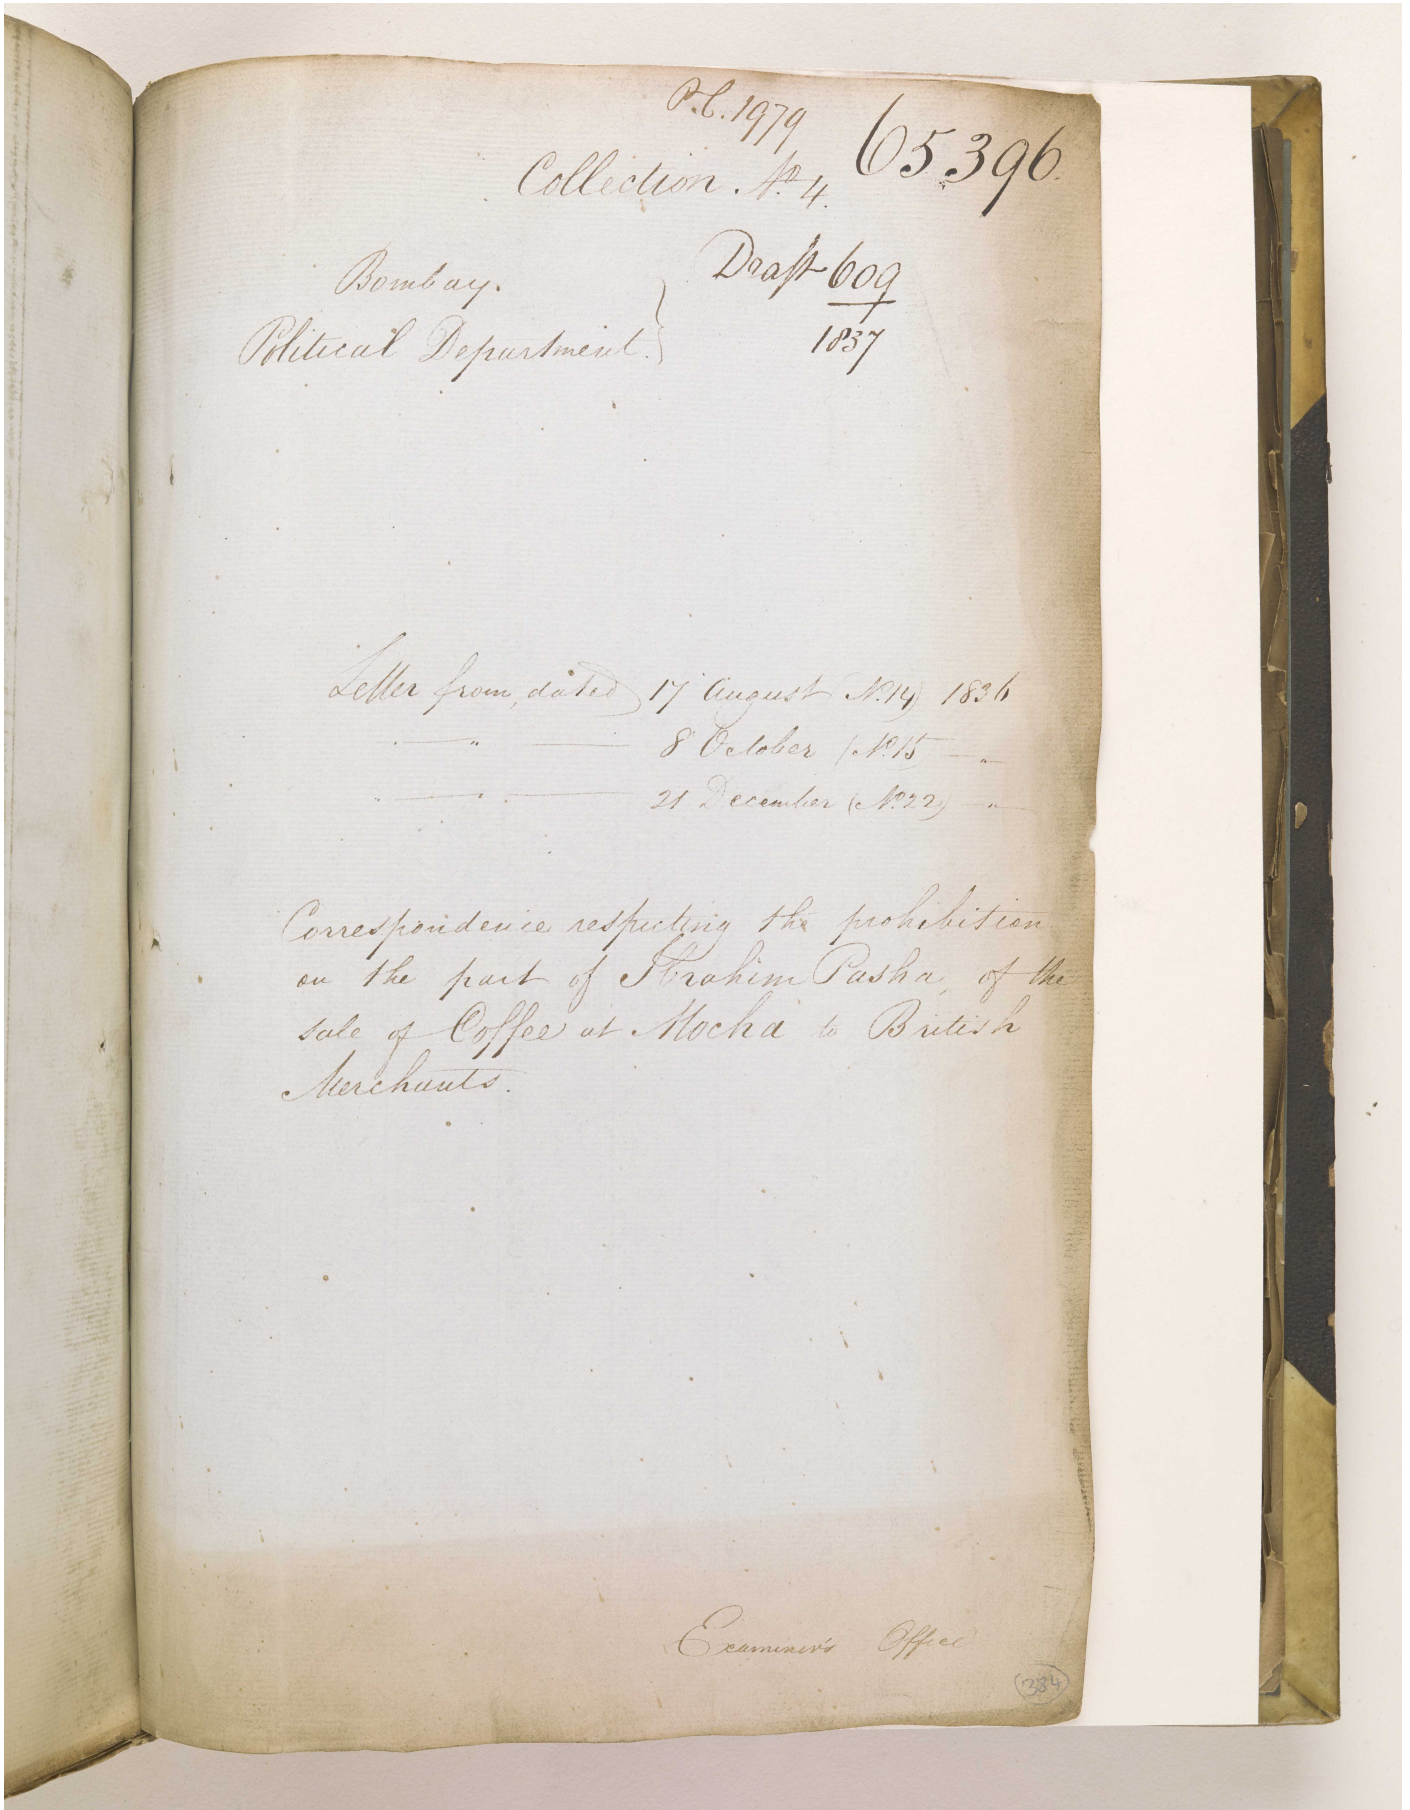 P.C. 1979
65396.
Collection No. 4.
Bombay. } Draft 609
Political Department. } 1837
Letter from, dated 17 August (No. 14) 1836
— " — 8 October (No. 15 — " —
— " — 21 December (No. 22) — " —
Correspondence respecting the prohibition
on the part of Ibrahim Pasha, of the
sale of Coffee at Mocha to British
Merchants.
Examiner's Office
384